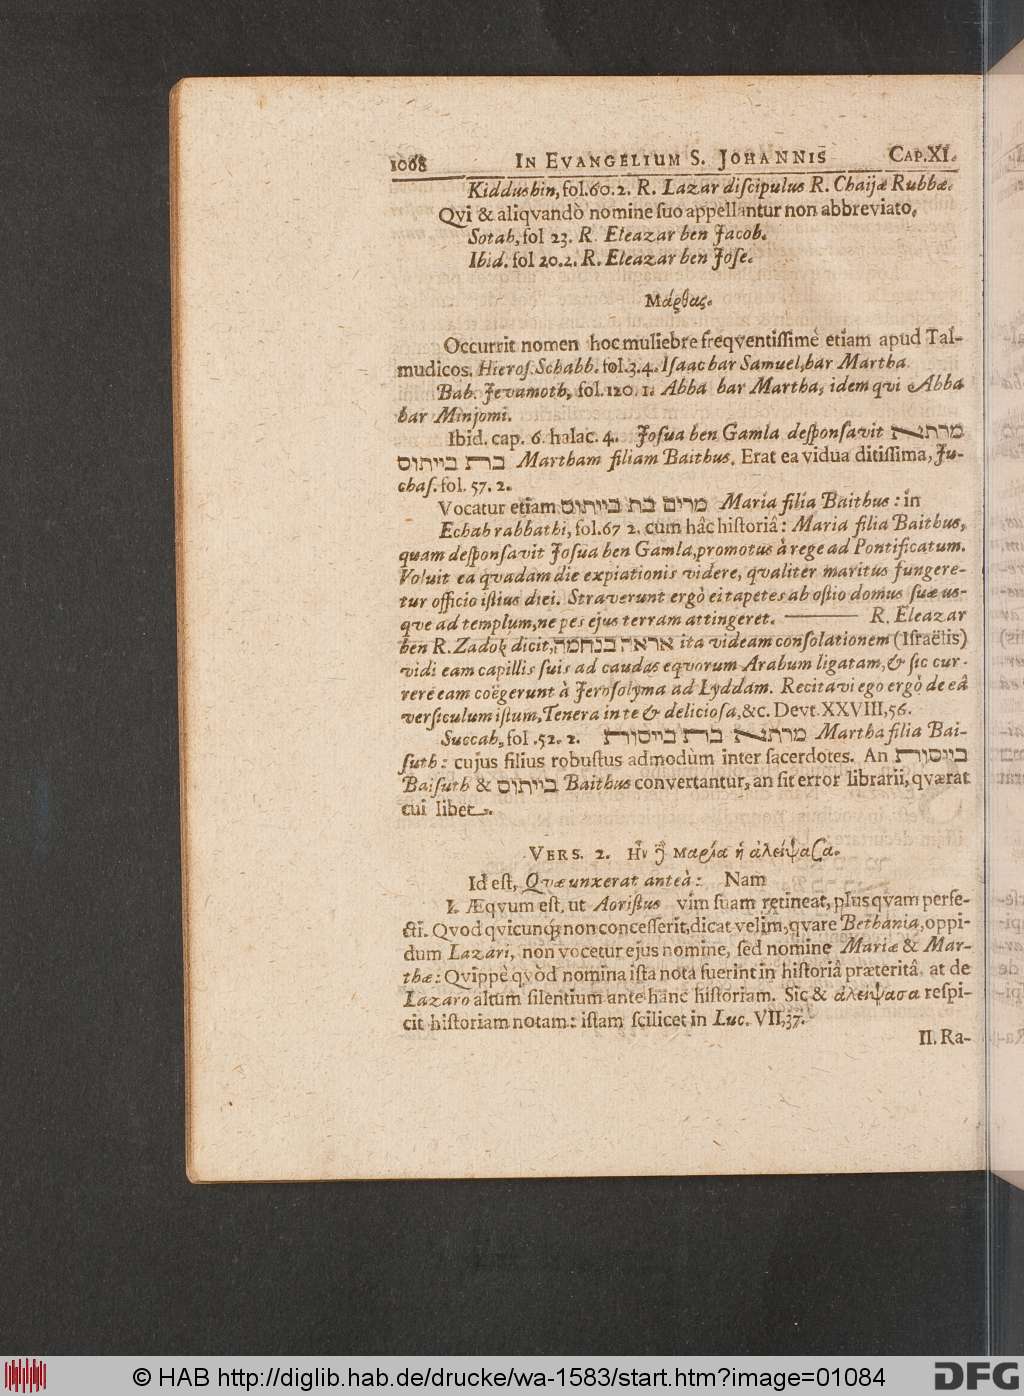 1068 IN EVANGELIUM S. JOHANNIS CAP.XI.
Kiddushin, fol.60.2. R. Lazar discipulus R. Chaijæ Rubbæ.
Qvi & aliqvandò nomine suo appellantur non abbreviato.
Sotah, fol 23. R. Eleazar ben Jacob.
Ibid. fol 20.2. R. Eleazar ben Jose.
Μάρθας.
Occurrit nomen hoc muliebre freqventissimè etiam apud Tal-
mudicos. Hieros. Schabb. fol.3.4. Isaac bar Samuel, bar Martha
Bab. Jevamoth, fol.120.1. Abba bar Martha, idem qvi Abba
bar Minjomi.
Ibid. cap. 6. halac. 4. Josua ben Gamla desponsavit מרתא
ברת בייתוס Martham filiam Baithus. Erat ea vidua ditissima, Ju-
chas. fol. 57. 2.
Vocatur etiam מרים בת בייתוס Maria filia Baithus: in
Echah rabbathi, fol.67 2. cum hâc historiâ: Maria filia Baithus,
quam desponsavit Josua ben Gamla, promotus à rege ad Pontificatum.
Voluit ea qvadam die expiationis videre, qvaliter maritus fungere-
tur officio istius diei. Straverunt ergò ei tapetes ab ostio domus suæ us-
qve ad templum, ne pes ejus terram attingeret. ——— R. Eleazar
ben R. Zadok dicit, אראה בנחמה ita videam consolationem (Israëlis)
vidi eam capillis suis ad caudas eqvorum Arabum ligatam, & sic cur-
rere eam coëgerunt à Jerosolyma ad Lyddam. Recitavi ego ergò de eâ
versiculum istum, Tenera in te & deliciosa, &c. Devt. XXVIII,56.
Succah, fol .52. 2. מרתא ברת בייסות Martha filia Bai-
suth: cujus filius robustus admodùm inter sacerdotes. An בייסות
Baisuth & בייתוס Baithus convertantur, an sit error librarii, qværat
cui libet.
VERS. 2. Ἦν δὲ Μαρία ἡ ἀλείψασα.
Id est, Qvæ unxerat anteà: Nam
I. Æqvum est, ut Aoristus vim suam retineat, plus qvam perfe-
cti. Qvod qvicunq; non concesserit, dicat velim, qvare Bethania, oppi-
dum Lazari, non vocetur ejus nomine, sed nomine Mariæ & Mar-
thæ: Qvippè qvòd nomina ista nota fuerint in historiâ præteritâ, at de
Lazaro altum silentium ante hanc historiam. Sic & ἀλείψασα respi-
cit historiam notam: istam scilicet in Luc. VII,37.
II. Ra-
© HAB http://diglib.hab.de/drucke/wa-1583/start.htm?image=01084
DFG